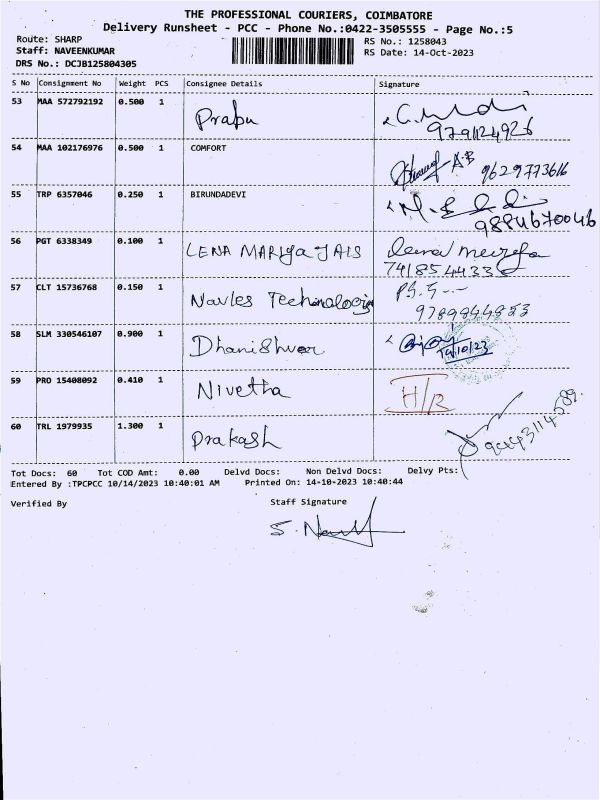 THE PROFESSIONAL COURIERS, COIMBATORE
Delivery Runsheet - PCC - Phone No.:0422-3505555 - Page No.:5
Route: SHARP
Staff: NAVEENKUMAR
DRS No.: DCJB125804305
RS No.: 1258043
RS Date: 14-Oct-2023
S No Consignment No Weight PCS Consignee Details Signature
53 MAA 572792192 0.500 1 Prabu
54 MAA 102176976 0.500 1 COMFORT A.B 9629773616
55 TRP 6357046 0.250 1 BIRUNDADEVI 9884670046
56 PGT 6338349 0.100 1 LENA MARIYA JAIS
741854433
57 CLT 15736768 0.150 1 Navles Technologies
58 SLM 330546107 0.900 1 Dhanishvar 14/10/23
59 PRO 15408092 0.410 1 Nivetha H/R
60 TRL 1979935 1.300 1 Prakash
Tot Docs: 60 Tot COD Amt: 0.00 Delvd Docs: Non Delvd Docs: Delvy Pts:
Entered By :TPCPCC 10/14/2023 10:40:01 AM Printed On: 14-10-2023 10:40:44
Verified By Staff Signature